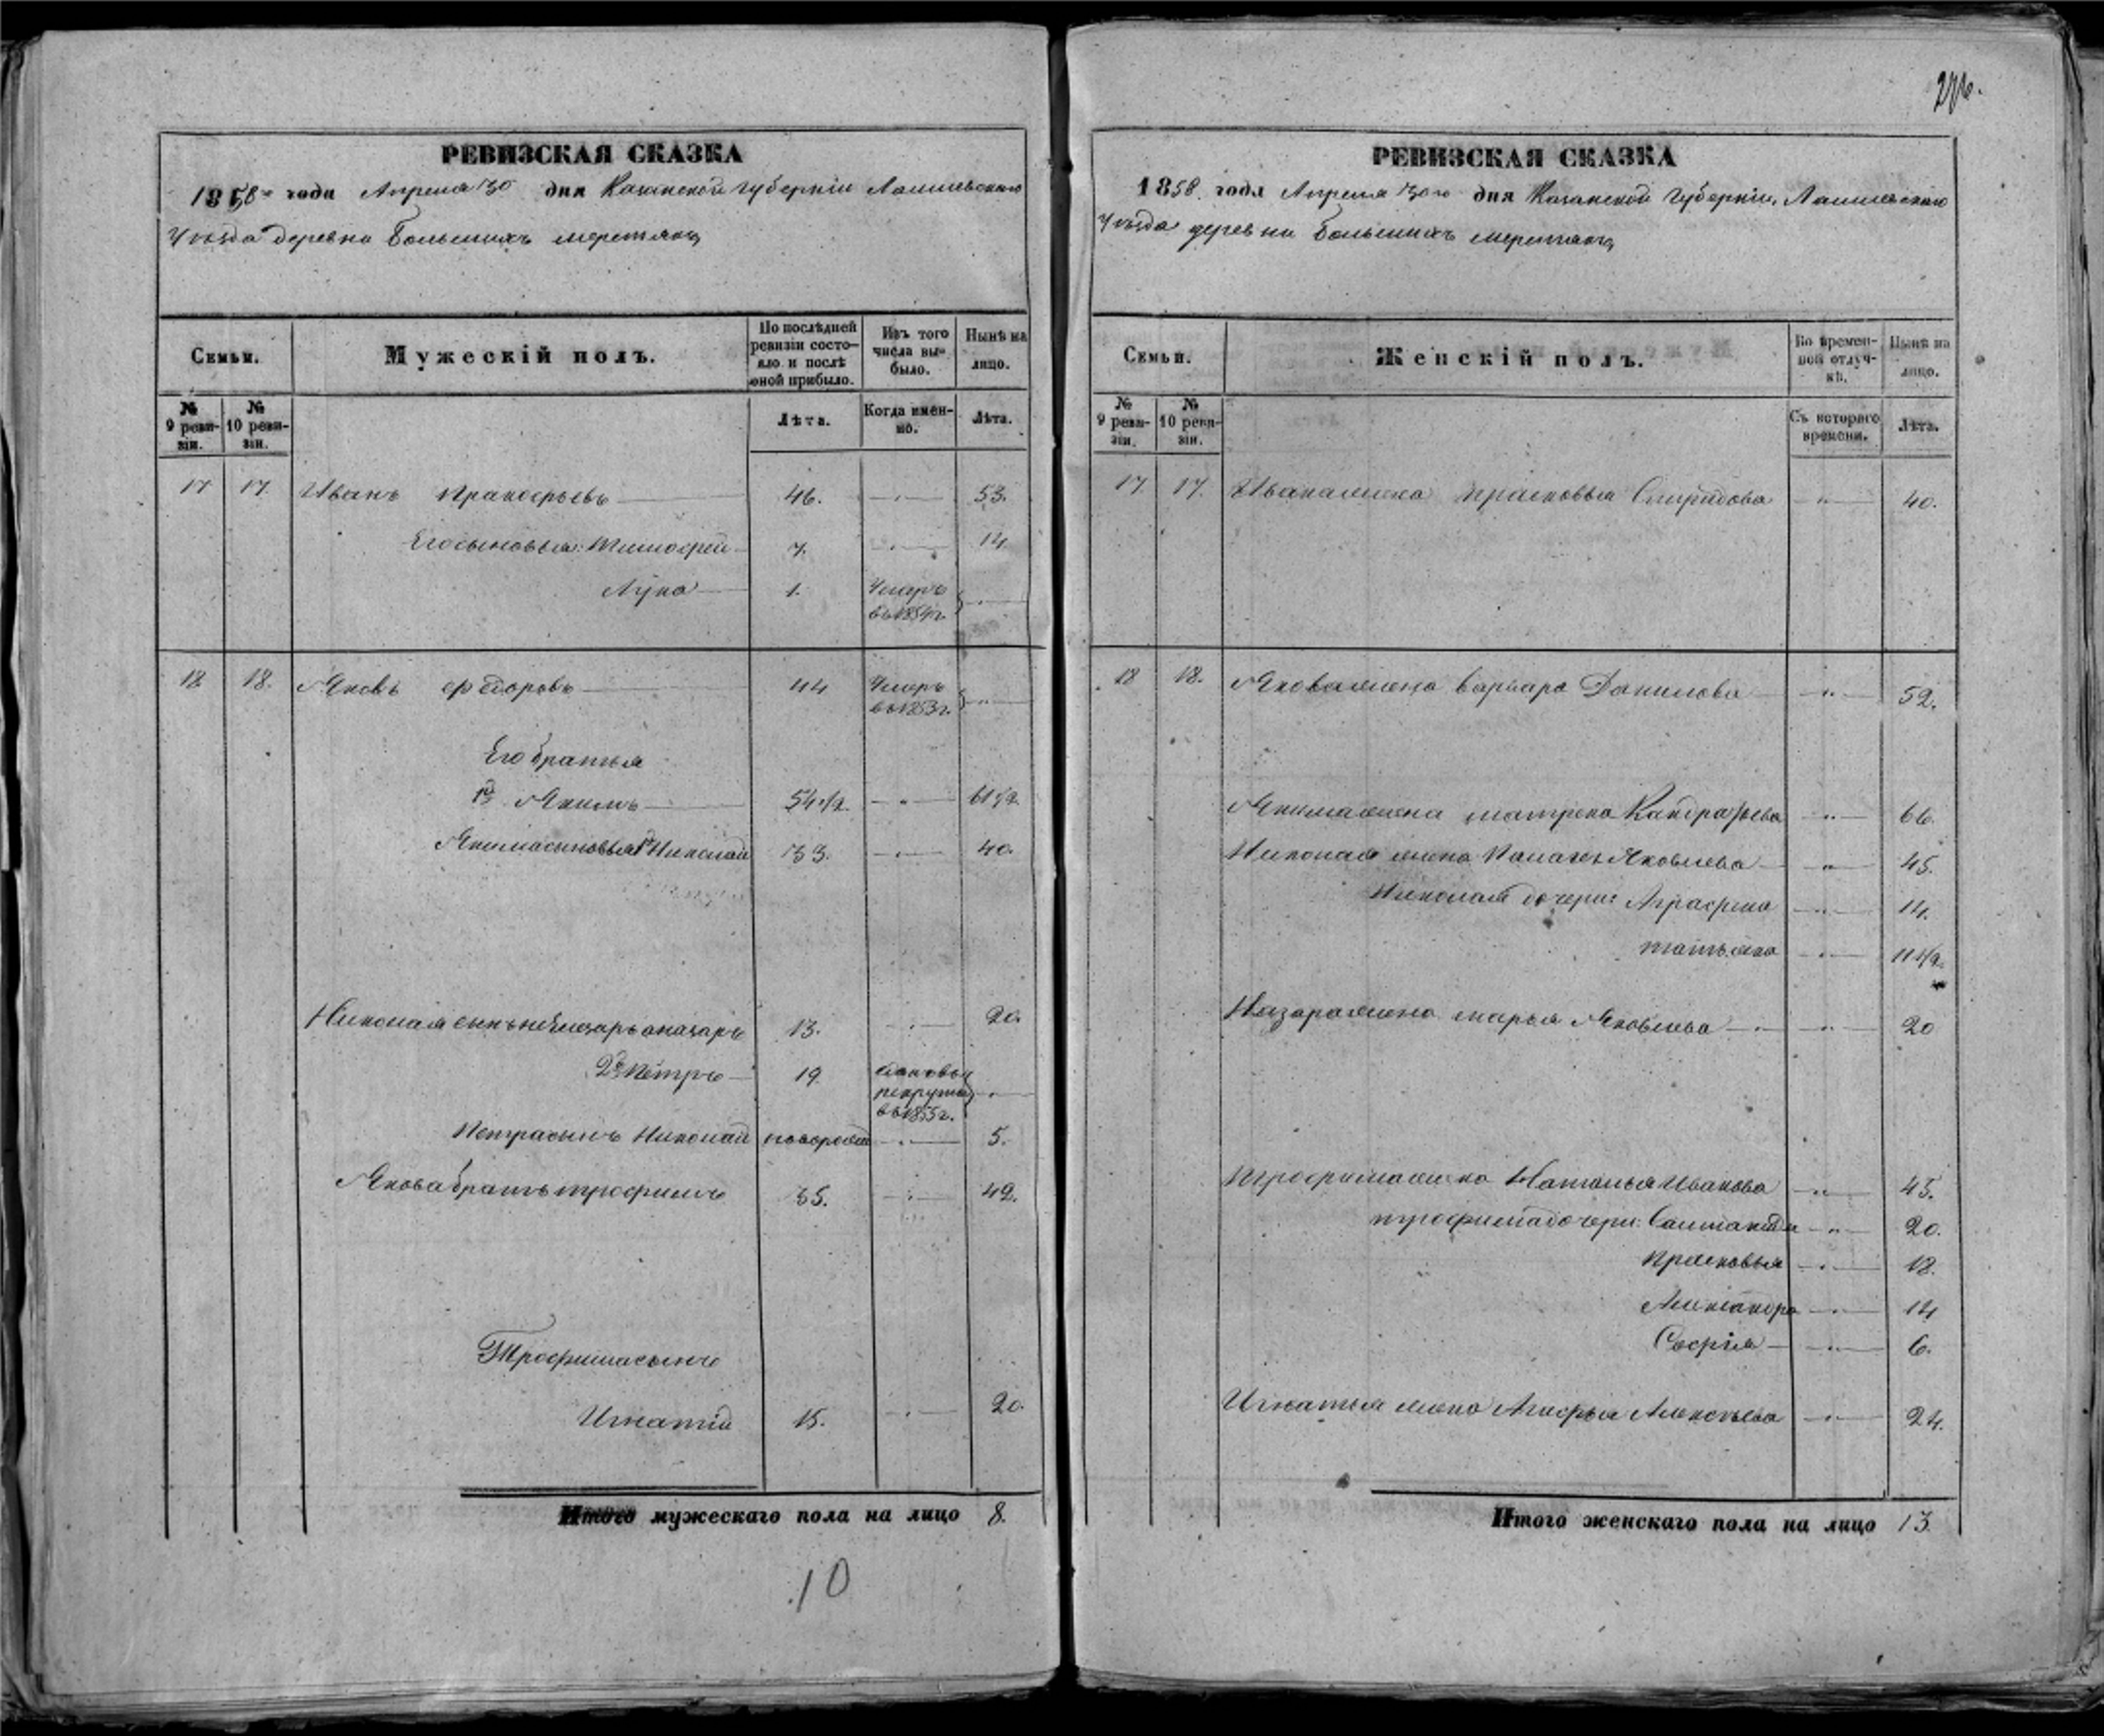 РЕВИЗСКАЯ СКАЗКА
1858го года Апреля 30 дня Казанской губерніи Лаишевскаго
Уѣзда деревни Большихъ меретякъ
Семьи.
Мужескій полъ.
По послѣдней ревизіи состояло и послѣ оной прибыло.
Изъ того числа выбыло.
Нынѣ на лицо.
№ 9 ревизіи.
№ 10 ревизіи.
Лѣта.
Когда именно.
Лѣта.
17 17. Иванъ Пракофьевъ 46. — " — 53.
Его сыновья: Тимофей 7. — " — 14
Лука 1. Умеръ въ 1854 г. — " —
18 18. Яковъ Федоровъ 44 Умеръ въ 1853 г. — " —
Его братья
1й Якимъ 54 1/2. — " — 61 1/2.
Якима сыновья 1й Николай 33. — " — 40.
Николая сынъ не Елизаръ а назаръ 13. — " — 20.
2й Петръ 19 рекруты в 1855 г. — " —
Петра сынъ Николай — " — 5.
Якова братъ трофимъ 35. — " — 42.
Трофима сынъ
Игнатій 15. — " — 20.
Итого мужескаго пола на лицо 8.
10
276.
РЕВИЗСКАЯ СКАЗКА
1858. года Апреля 30го дня Казанской губерніи, Лаишевскаго
Уѣзда деревни Большихъ меретякъ
Семьи.
Женскій полъ.
Во временной отлучкѣ.
Нынѣ на лицо.
№ 9 ревизіи.
№ 10 ревизіи.
Съ котораго времени.
Лѣта.
17. 17. Ивана жена Прасковья Спиридова — " — 40.
18 18. Якова жена варвара Данилова — " — 52.
Якима жена матрена Кандратьева — " — 66.
Николая жена Яковлева — " — 45.
Николая дочери: Аграфена — " — 14.
татьяна — " — 11 1/2.
Назара жена марья Яковлева — " — 20
Трофима жена Наталья Иванова — " — 45.
трофима дочери: — " — 20.
Прасковья — " — 18.
Александра — " — 14
Софія — " — 6.
Игнатья жена Алексѣева — " — 24.
Итого женскаго пола на лицо 13.